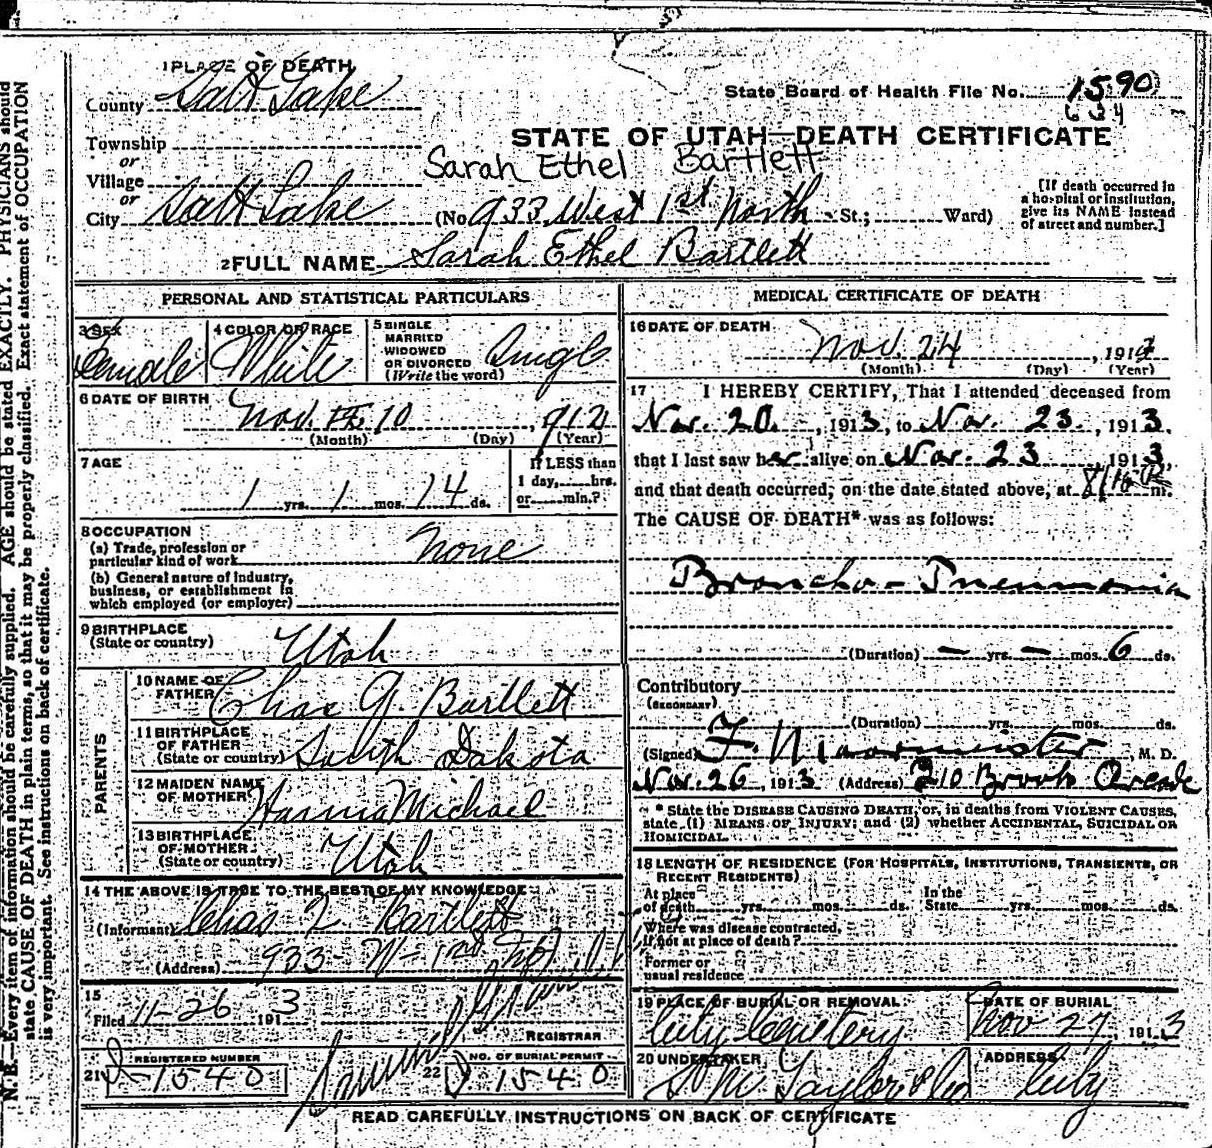 1 PLACE OF DEATH
County Salt Lake
State Board of Health File No. 1590
664
Township
STATE OF UTAH—DEATH CERTIFICATE
or
Village
Sarah Ethel Bartlett
or
City Salt Lake (No. 933 West 1st North St.; Ward)
[If death occurred in a hospital or institution, give its NAME instead of street and number.]
2 FULL NAME Sarah Ethel Bartlett
PERSONAL AND STATISTICAL PARTICULARS
3 SEX Female
4 COLOR OR RACE White
5 SINGLE MARRIED WIDOWED OR DIVORCED (Write the word) Single
6 DATE OF BIRTH Nov. 10, 1912
(Month) (Day) (Year)
7 AGE
1 yrs. 1 mos. 14 ds.
If LESS than 1 day, hrs. or min.?
8 OCCUPATION
(a) Trade, profession or particular kind of work None
(b) General nature of industry, business, or establishment in which employed (or employer)
9 BIRTHPLACE
(State or country) Utah
PARENTS
10 NAME OF FATHER Chas G. Bartlett
11 BIRTHPLACE OF FATHER (State or country) South Dakota
12 MAIDEN NAME OF MOTHER Hanna Michael
13 BIRTHPLACE OF MOTHER (State or country) Utah
14 THE ABOVE IS TRUE TO THE BEST OF MY KNOWLEDGE
(Informant) Chas Bartlett
(Address) 933 W
15
Filed 11-26 1913
REGISTRAR
21 REGISTERED NUMBER 1540
22 NO. OF BURIAL PERMIT 1540
MEDICAL CERTIFICATE OF DEATH
16 DATE OF DEATH
Nov. 24, 1913
(Month) (Day) (Year)
17 I HEREBY CERTIFY, That I attended deceased from
Nov. 20, 1913, to Nov. 23, 1913,
that I last saw her alive on Nov. 23 1913,
and that death occurred, on the date stated above, at m.
The CAUSE OF DEATH* was as follows:
Broncho-Pneumonia
(Duration) — yrs. — mos. 6 ds.
Contributory
(SECONDARY)
(Duration) yrs. mos. ds.
(Signed) F. Moormeister, M. D.
Nov. 26, 1913 (Address) 210 Brooks Arcade
* State the DISEASE CAUSING DEATH, or, in deaths from VIOLENT CAUSES,
state (1) MEANS OF INJURY; and (2) whether ACCIDENTAL, SUICIDAL OR
HOMICIDAL.
18 LENGTH OF RESIDENCE (FOR HOSPITALS, INSTITUTIONS, TRANSIENTS, OR
RECENT RESIDENTS)
At place of death yrs. mos. ds. In the State yrs. mos. ds.
Where was disease contracted,
If not at place of death?
Former or
usual residence
19 PLACE OF BURIAL OR REMOVAL City Cemetery
DATE OF BURIAL Nov 27 1913
20 UNDERTAKER S M Taylor & Co
ADDRESS City
READ CAREFULLY INSTRUCTIONS ON BACK OF CERTIFICATE
N. B.—Every item of information should be carefully supplied. AGE should be stated EXACTLY. PHYSICIANS should
state CAUSE OF DEATH in plain terms, so that it may be properly classified. Exact statement of OCCUPATION
is very important. See instructions on back of certificate.